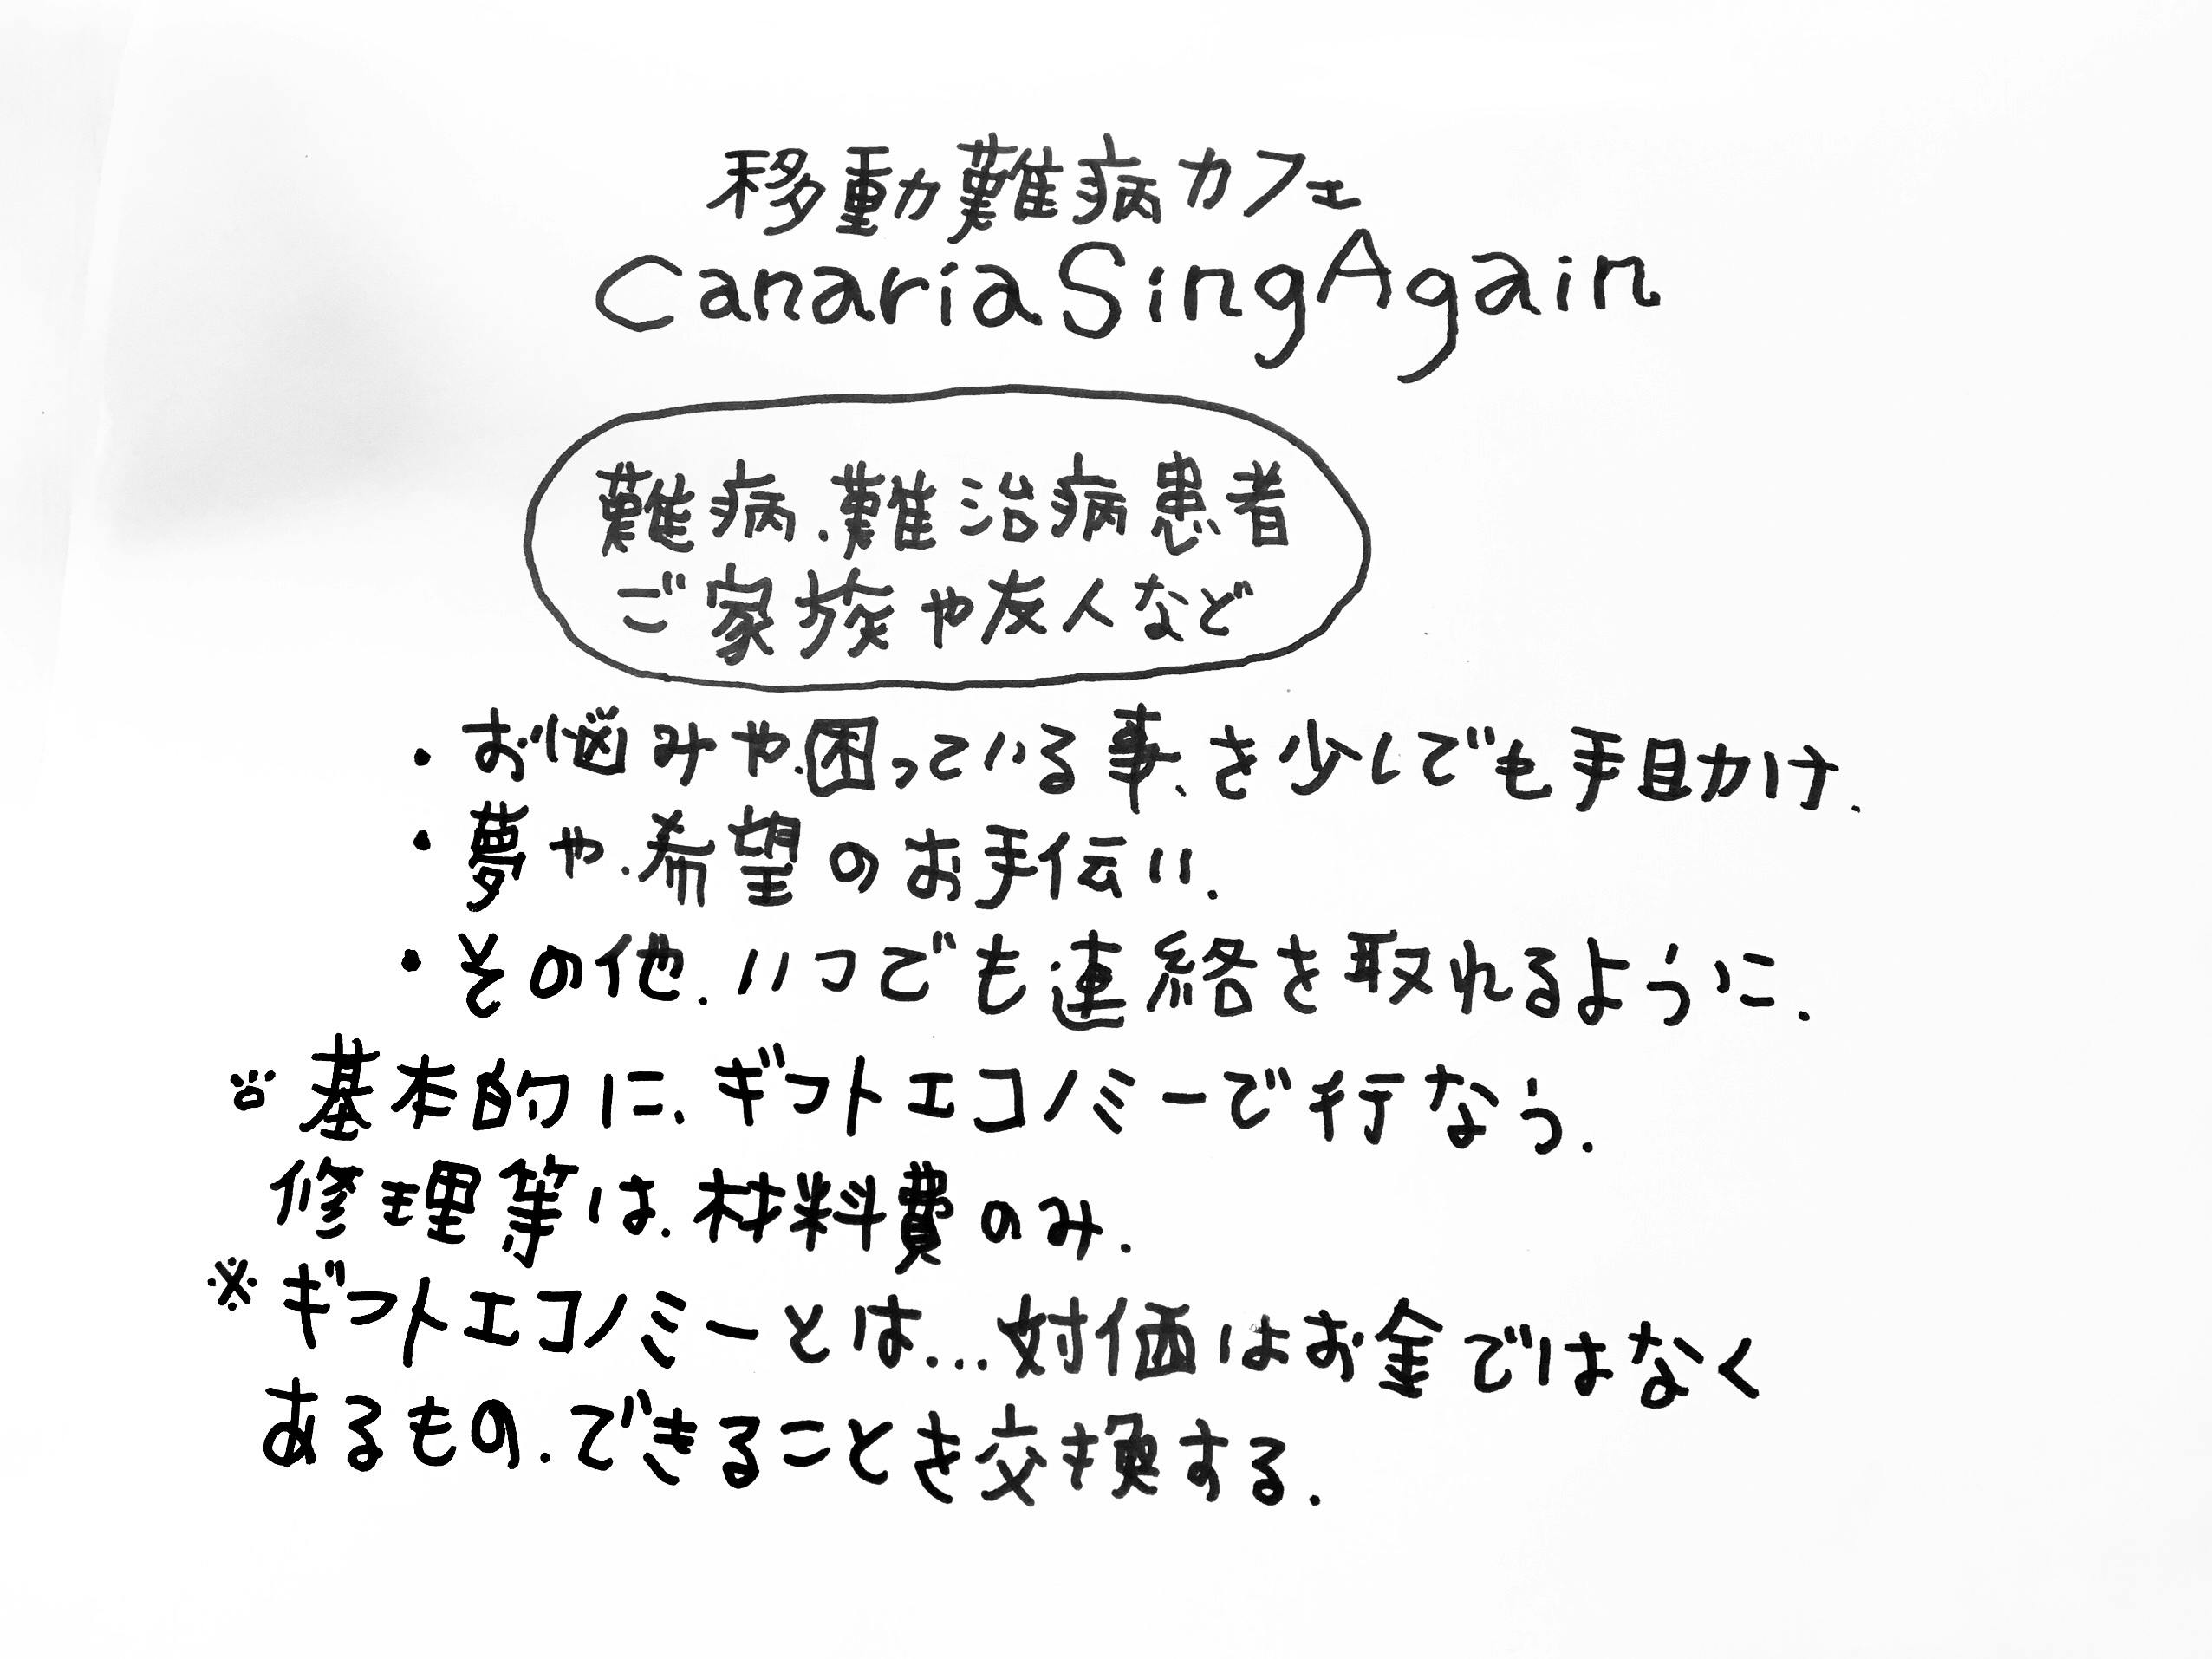 移動難病カフェ
CanariaSingAgain
難病.難治病患者
ご家族や友人など
・お悩みや.困っている事、を少しでも手助け.
・夢や.希望のお手伝い.
・その他.いつでも連絡を取れるように.
※基本的に、ギフトエコノミーで行なう.
修理等は.材料費のみ.
※ギフトエコノミーとは...対価はお金ではなく
あるもの.できることを交換する.